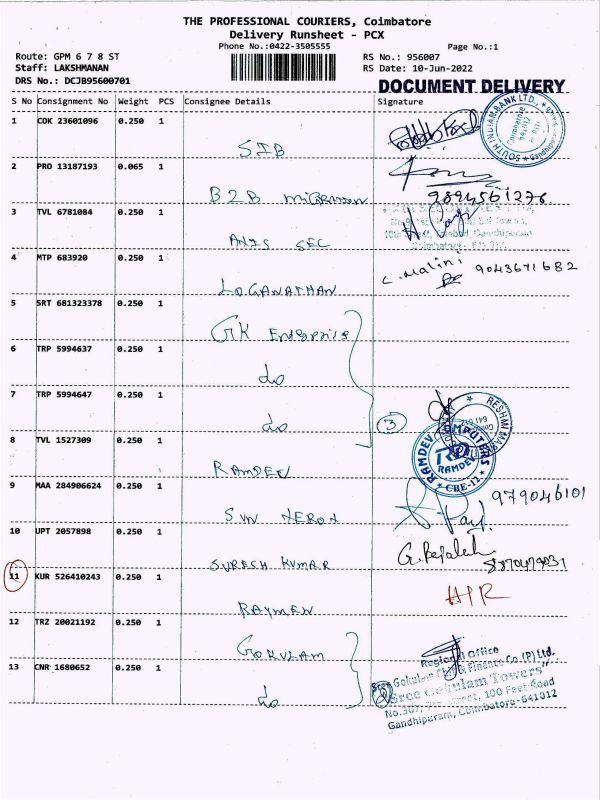 THE PROFESSIONAL COURIERS, Coimbatore
Delivery Runsheet - PCX
Phone No.:0422-3505555
Page No.:1
Route: GPM 6 7 8 ST
RS No.: 956007
Staff: LAKSHMANAN
RS Date: 10-Jun-2022
DRS No.: DCJB95600701
DOCUMENT DELIVERY
S No Consignment No Weight PCS Consignee Details Signature
1 COK 23601096 0.250 1
SIB
SOUTH INDIAN BANK LTD.,
Coimbatore
641012
2 PRO 13187193 0.065 1
B2B migration
9894561276
3 TVL 6781084 0.250 1
ANIS SEC
4 MTP 683920 0.250 1
LOGANATHAN
C. Malini 9043671682
5 SRT 681323378 0.250 1
GK Enterprise
6 TRP 5994637 0.250 1
do
7 TRP 5994647 0.250 1
do
3
8 TVL 1527309 0.250 1
RAMDEV
RAMDEV COMPUTERS
RAMDEV
CBE-12
9 MAA 284906624 0.250 1
979046101
10 UPT 2057898 0.250 1
SURESH KUMAR
11 KUR 526410243 0.250 1
RAYMEN
12 TRZ 20021192 0.250 1
GOKULAM
13 CNR 1680652 0.250 1
do
2
Regional Office
Sree Gokulam Chit & Finance Co (P) Ltd.
"Sree Gokulam Towers"
100 Feet Road
Gandhipuram, Coimbatore-641012